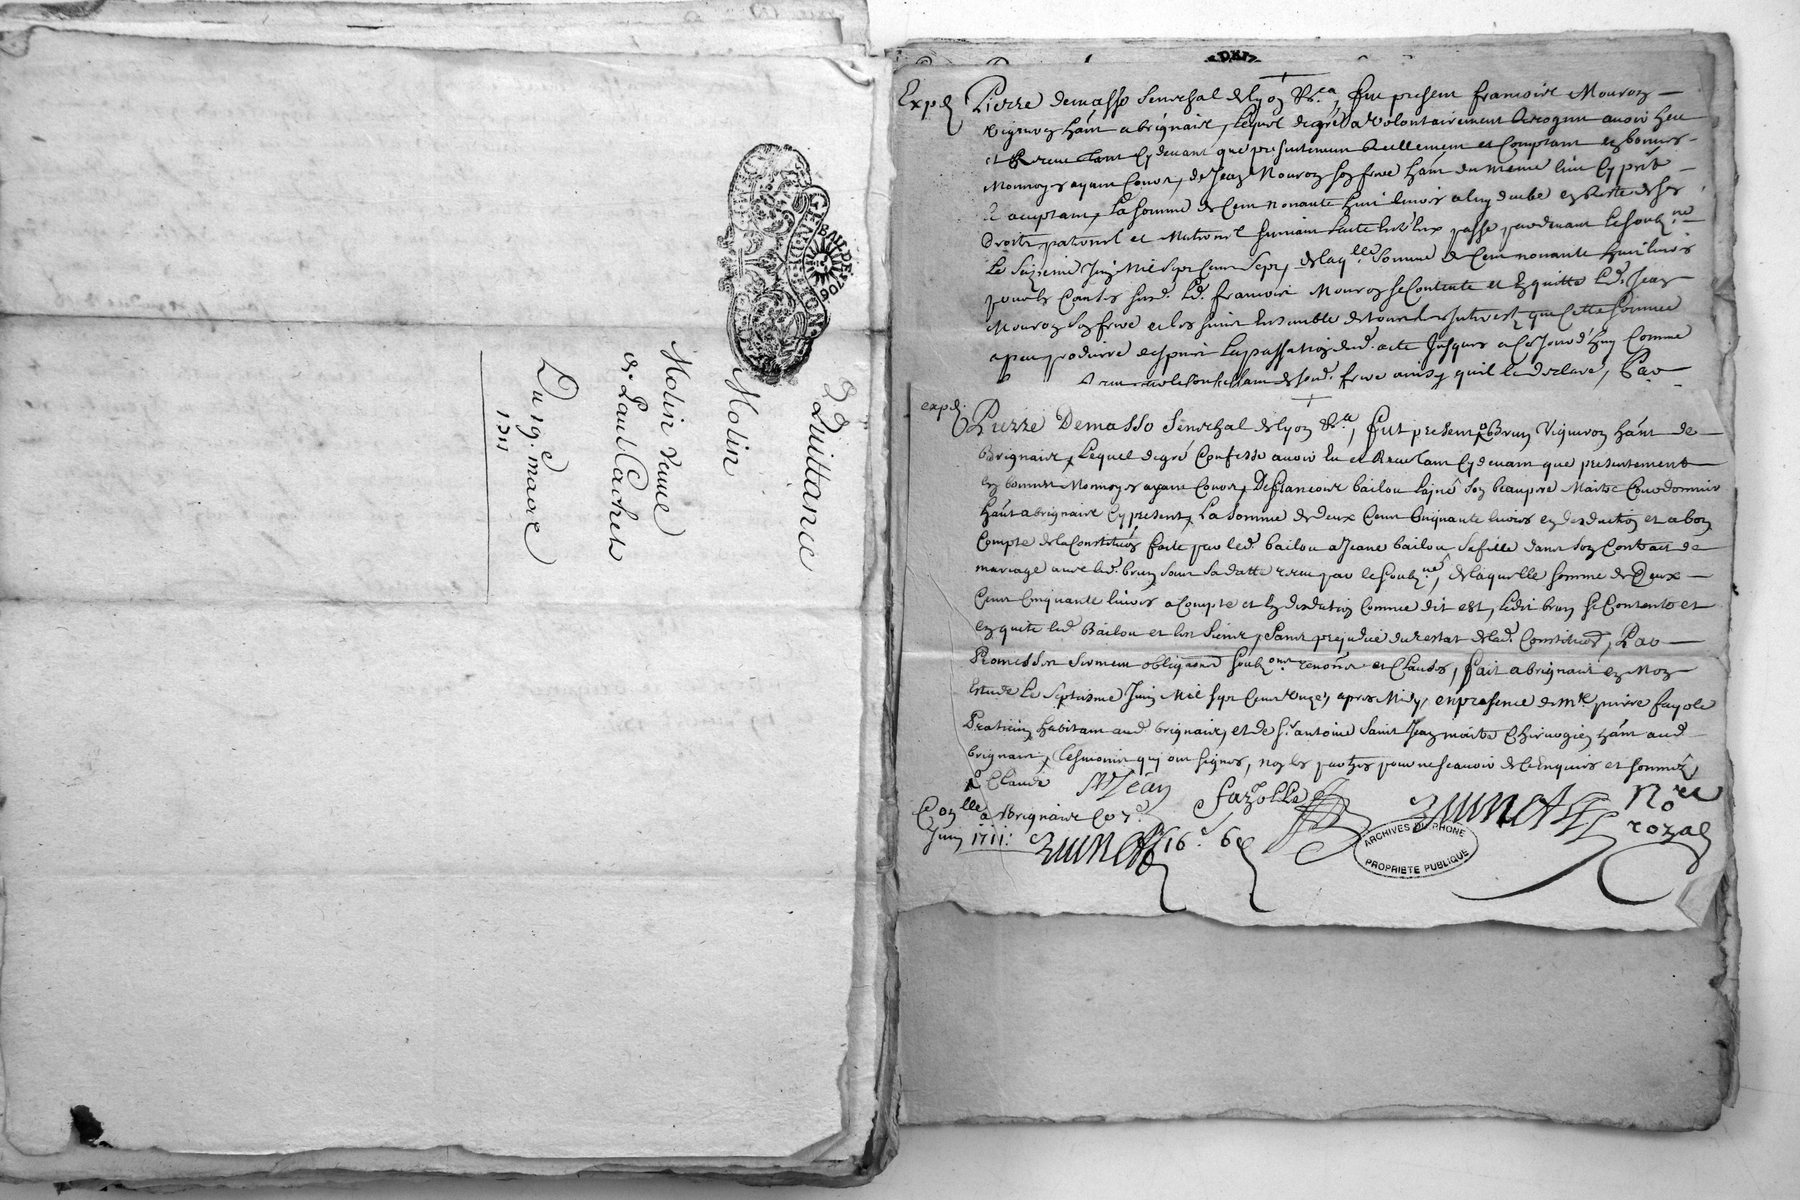 Quittance
Molin
Molin veuve
de Paul Cachet
Du 19.e mars
1711
GEN DE LYON
BAIL DE 1706
Exp.d Pierre demasso senechal de lyon &.ca, fut present francois Mouron
vigneron ha'nt a brignais, lequel de gré a volontairement recogneu avoir heu
et receu tant cy devant que presentement reellement et Comptant en bonnes
Monnoyes ayant Cours, de Jean Mouron son frere ha'nt du meme lieu cy p'nt
& acceptant, la somme de Cent nonante huit livres a luy deube en reste de ses
droits paternel et Maternel suivant l'acte passe pardevant le soub.ne
le Juin Mil sept Cent sept, de laq.lle somme de Cent nonante huit livres
led. francois Mouron se Contente et en quitte led. Jean
Mouron son frere et les siens Ensemble de tous les Interest que Cette somme
a peu produire despuis la passation dud. acte Jusques a Ce Jourd'huy Comme
dud. frere ainsy quil le declare, Par
exp.d Pierre Demasso senechal de lyon &.a, fut present Brun vigneron ha'nt de
Brignais, lequel de gré Confesse avoir eu et Receu tant cy devant que presentement
en bonnes Monnoyes ayant Cours, De francois bailou laine son beaupere Maitre Cordonnier
ha'nt a brignais cy present, la somme de deux Cent Cinquante livres en deduction et a bon
Compte de la Constitu'on faite par led. bailou a Jeane bailou sa fille dans son Contract de
mariage avec led. brun sous sa datte receu par le soub.ne, de laquelle somme de Deux
Cent Cinquante livres a Compte et en deduction Comme dit est, ledit brun se Contente et
en quitte led. Bailou et les siens, sans prejudice du restat de lad. Constitution, Par
Promesses serment obligations soub.ons renon'ons et Clauses, fait a brignais en Mon
Estude le septieme Juin Mil sept Cent unze, apres Midy, en presence de m.re pierre fayole
Praticien habitant aud. brignais, et de s.r antoine saint Jean maitre Chirurgien ha'nt aud.
brignais, tesmoins qui ont signes, non les parties pour ne scavoir de Ce Enquis et sommez,
Claude
St Jean
fayolle
N.re
royal
Con.lle a Brignais Ce 7.e
Juin 1711:
16.s 6.d
ARCHIVES DU RHONE
PROPRIETE PUBLIQUE